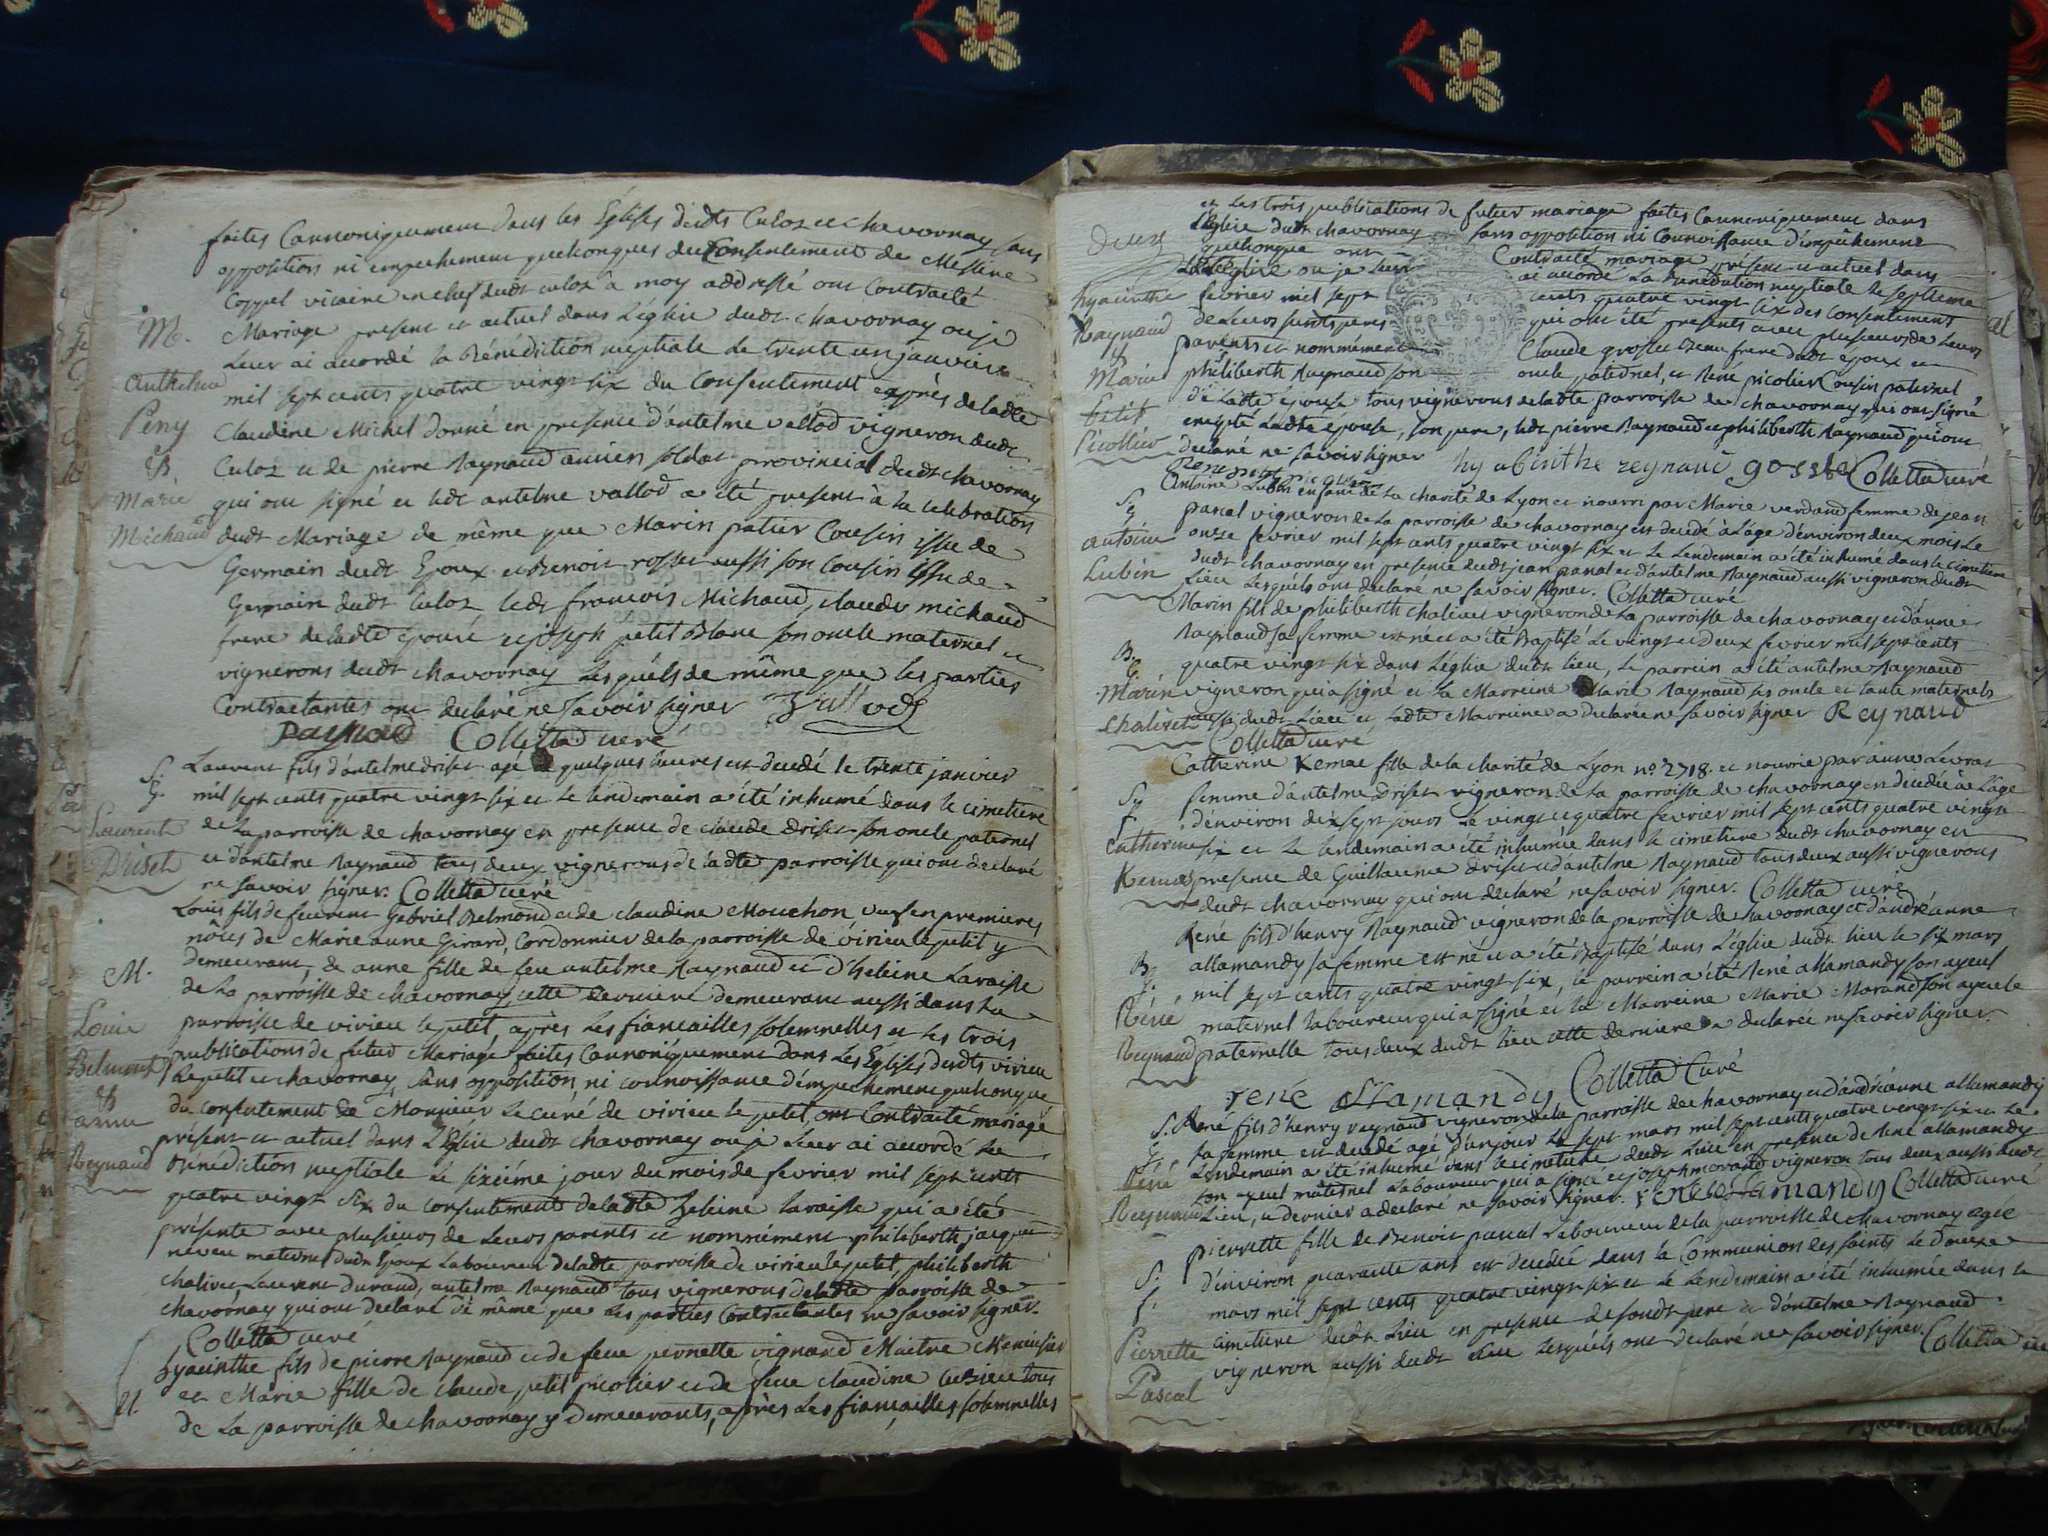 faites Cannoniquement dans les Églises desdts Culoz et chavornay sans
opposition ni empechement quelconques du Consentement de Messire
Coppel vicaire en chef dudt culoz à moy addressé ont Contracté
M.
Mariage présent et actuel dans L'église dudt chavornay ou je
Leur ai accordé la Bénédiction nuptiale le trente un janvier
anthelme
mil sept cents quatre vingt six du Consentement exprès de ladte
Peny
Claudine Michel donné en presence d'antelme vallod vigneron dudt
&
Culoz et de pierre Raynaud ancien soldat provincial dudt chavornay
Marie
qui ont signé et ledt antelme vallod a été present à la celebration
Michaud
dudt Mariage de même que Marin patier Cousin issu de
Germain dudt Epoux et Benoit rosset aussi son Cousin issu de
Germain dudt culoz ledt francois Michaud, claude michaud
frere de ladte épouse et joseph petit Blanc son oncle maternel et
vignerons dudt chavornay Lesquels de même que les parties
Contractantes ont declaré ne savoir signer
Raynaud Colletta curé
S.
Laurent fils d'antelme driset agé de quelques heures est decedé le trente janvier
g.
mil sept cents quatre vingt six et le lendemain a été inhumé dans le cimetiere
Laurent
de la parroisse de chavornay en presence de claude Driset son oncle paternel
Driset
et d'antelme Raynaud tous deux vignerons de ladte parroisse qui ont declaré
ne savoir signer. Colletta curé
Louis fils de feu Gabriel Belmond et de claudine Mouchon, veuf en premieres
nôces de Marie anne Girard, Cordonnier de la parroisse de virieu le petit y
M.
demeurant, et anne fille de feu antelme Raynaud et d'heleine Laraisse
de la parroisse de chavornay cette derniere demeurant aussi dans la
Louis
parroisse de virieu le petit, après les fiancailles solemnelles et les trois
Belmont
publications de futur Mariage faites Cannoniquement dans Les Églises desdts virieu
&
le petit et chavornay, sans opposition, ni connoissance d'empechement quelconque
anne
du consentement de Monsieur Le curé de virieu le petit, ont Contracté mariage
Reynaud
présent et actuel dans L'église dudt chavornay ou je Leur ai accordé la
Bénédiction nuptiale le sixième jour du mois de fevrier mil sept cents
quatre vingt six du consentement de ladte heleine laraisse qui a été
présente avec plusieurs de Leurs parents et nommément philiberth jacquet
neveu maternel dudt époux Laboureur de ladte parroisse de virieu le petit, philiberth
chalivet, Laurent durand, antelme Raynaud tous vignerons de ladte parroisse de
chavornay qui ont declaré de même que les parties Contractantes ne savoir signer.
Colletta curé
hyacinthe fils de pierre Raynaud et de feue pernette vignand Maitre Menuisier
M.
et Marie fille de claude petit picolier et de feue claudine tous
de la parroisse de chavornay y demeurants, après Les fiancailles solemnelles
et Les trois publications de futur mariage faites Cannoniquement dans
L'Église dudt chavornay sans opposition ni Connoissance d'empêchement
quelconque ont Contracté mariage présent et actuel dans
Ladte église ou je Leur ai accordé La Bénédiction nuptiale Le septième
hyacinthe
fevrier mil sept cents quatre vingt six des consentement
Raynaud
de Leurs susdts peres qui ont été presents avec plusieurs de Leurs
&
parents et nommément Claude grosset Beau frere dudt époux et
Marie
philiberth Raynaud son oncle paternel, et René picolier Cousin paternel
petit
de Ladte épouse tous vignerons de ladte parroisse de chavornay qui ont signé
Picollier
excepté Ladte épouse, son pere, ledt pierre Raynaud et philiberth Raynaud qui ont
declaré ne savoir signer hyabinthe reynaud gosste Colletta curé
rene petit picolier
Antoine Lubin enfant de La charité de Lyon et nourri par Marie verdand femme de jean
S.
panal vigneron de La parroisse de chavornay est decedé à L'âge d'environ deux mois Le
antoine
onze fevrier mil sept cents quatre vingt six et Le Lendemain a été inhumé dans le cimetiere
Lubin
dudt chavornay en presence dudt jean panal et d'antelme Raynaud aussi vigneron dudt
Lieu Lesquels ont declaré ne savoir signer. Colletta curé
Marin fils de philiberth chalivet vigneron de La parroisse de chavornay et d'anne
Raynaud sa femme est né et a été Baptisé Le vingt et deux fevrier mil sept cents
B.
quatre vingt six dans L'église dudt lieu, Le parrein a été antelme Raynaud
g.
Marin
vigneron qui a signé et La Marreine Marie Raynaud ses oncle et tante maternels
chalivet
aussi dudt Lieu et ladte Marreine a declarée ne savoir signer Reynaud
Colletta curé
Catherine Kemae fille de la charité de Lyon no. 2718. et nourrie par anne Levrat
S.
femme d'antelme Driset vigneron de La parroisse de chavornay est decedée à L'âge
f.
d'environ dix sept jours Le vingt et quatre fevrier mil sept cents quatre vingts
Catherine
six et Le Lendemain a été inhumée dans le cimetiere dudt chavornay en
Kemae
presence de Guillaume Driset et d'antelme Raynaud tous deux aussi vignerons
dudt chavornay qui ont declaré ne savoir signer. Colletta curé
René fils d'henry Raynaud vigneron de la parroisse de chavornay et d'andréanne
B.
allamandy sa femme est né et a été Baptisé dans L'église dudt lieu le six mars
g.
mil sept cents quatre vingt six, le parrein a été René allamandy son ayeul
Réné
maternel laboureur qui a signé et la Marreine Marie Morand son ayeule
Reynaud
paternelle tous deux dudt lieu cette derniere a declarée ne savoir signer.
rené allamandy Colletta Curé
S.
René fils d'henry reynaud vigneron de la parroisse de chavornay et d'andréanne allamandy
g.
sa femme est decedé agé d'un jour Le sept mars mil sept cents quatre vingt six et Le
Réné
Lendemain a été inhumé dans le cimetiere dudt Lieu en presence de René allamandy
son ayeul maternel Laboureur qui a signé et joseph morand vigneron tous deux aussi dudt
Reynaud
Lieu, ce dernier a declaré ne savoir signer. rené allamandy Colletta curé
pierrette fille de Benoit pascal Laboureur de la parroisse de chavornay agée
S.
d'environ quarante ans est decedée dans la Communion des saints Le douze
f.
mars mil sept cents quatre vingt six et le Lendemain a été inhumée dans le
Pierrette
cimetiere dudt Lieu en presence de sondt pere et d'antelme Raynaud
Pascal
vigneron aussi dudt Lieu Lesquels ont declaré ne savoir signer. Colletta curé